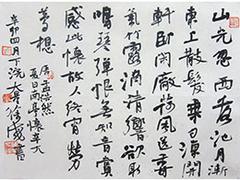 山光忽西落池月漸
東上散髮乘夕凉開
軒卧閑敞荷風送香
氣竹露滴清響欲取
鳴琴彈恨無知音賞
感此懷故人終宵勞
夢想
唐孟浩然
夏日南亭懷辛大
辛卯四月下浣
書